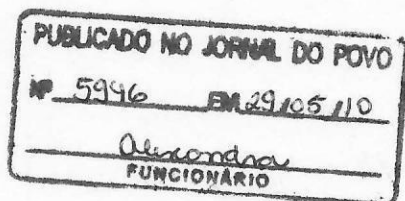 PUBLICADO NO JORNAL DO POVO
Nº 5946 EM 29/05/10
Alexandra
FUNCIONÁRIO